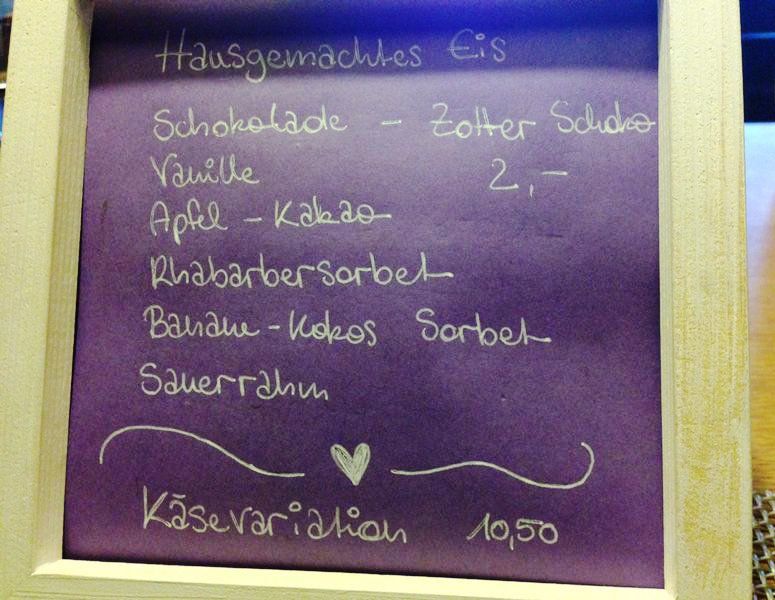 Hausgemachtes Eis
Schokolade - Zotter Schoko
Vanille 2,-
Apfel - Kakao
Rhabarbersorbet
Banane - Kokos Sorbet
Sauerrahm
Käsevariation 10,50